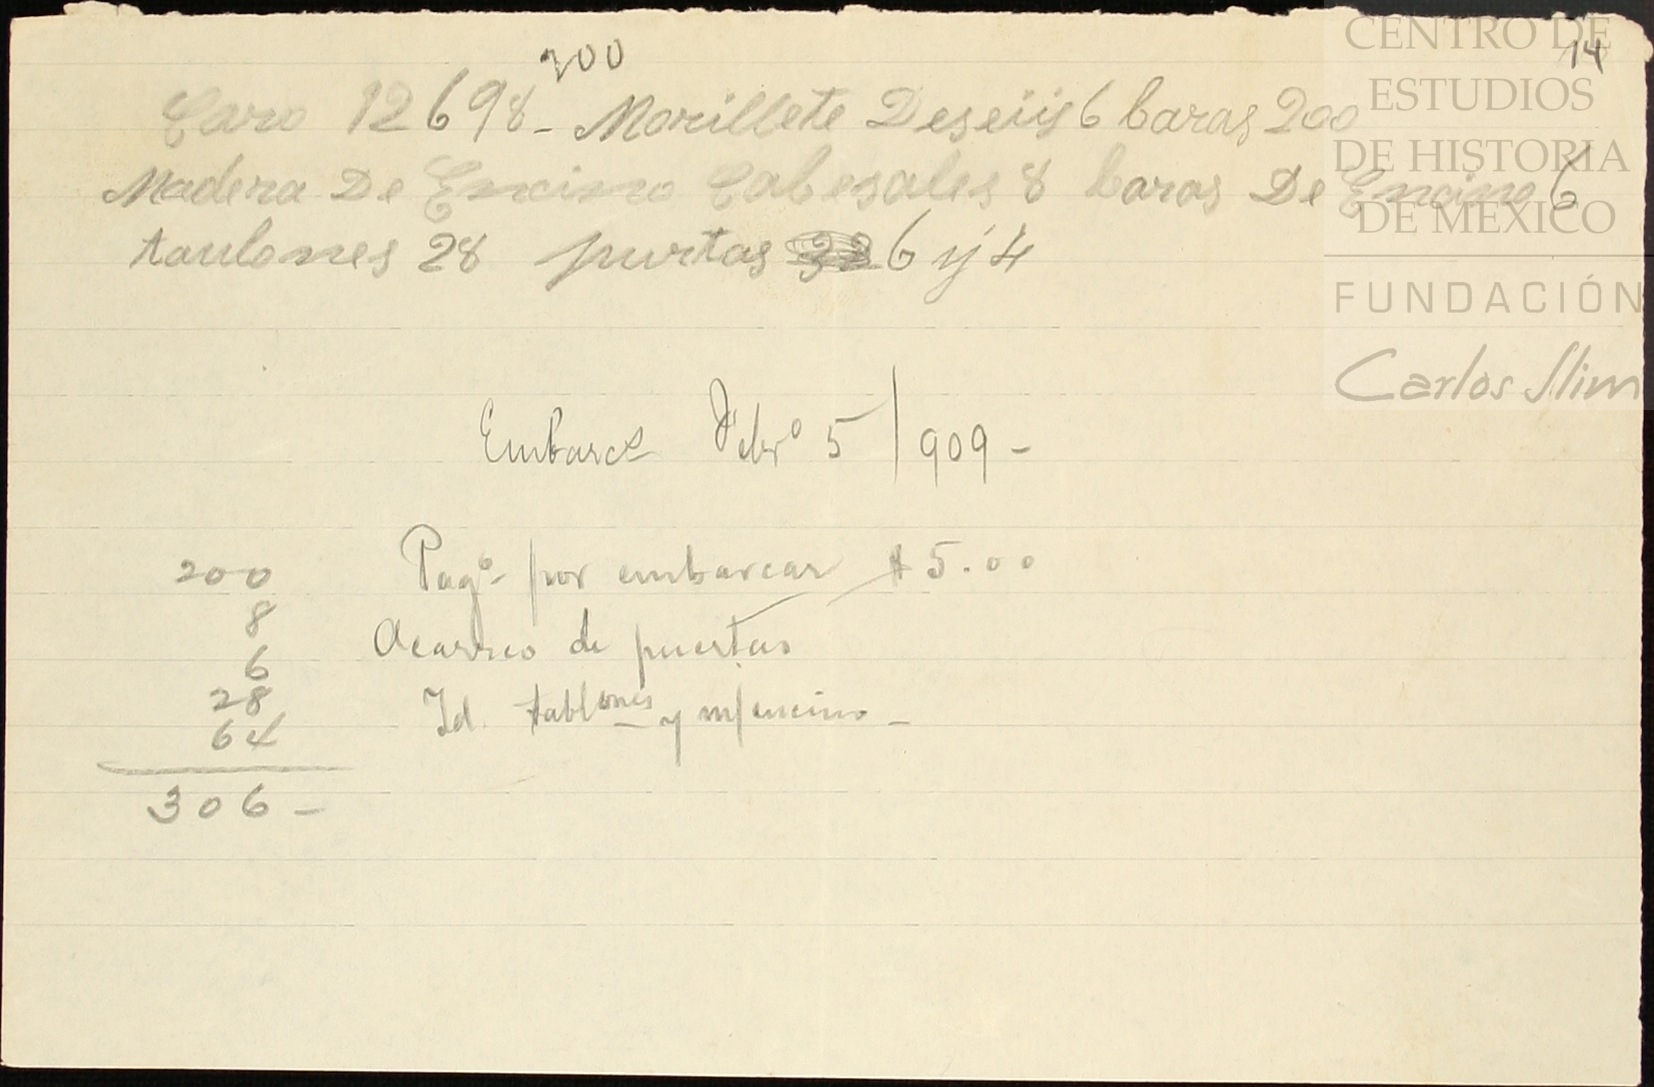 14
200
Caro 12698 - Morillete Deseiis 6 baras 200
Madera De Encino Cabesales 8 baras De Encino 6
taulones 28 purtas 6 y 4
Embarcs Febrº 5/909 -
200 Pagº por embarcar $5.00
8
Acarreo de puertas
6
28 Id. tablones y m/encino -
64
306 -
CENTRO DE
ESTUDIOS
DE HISTORIA
DE MÉXICO
FUNDACIÓN
Carlos Slim